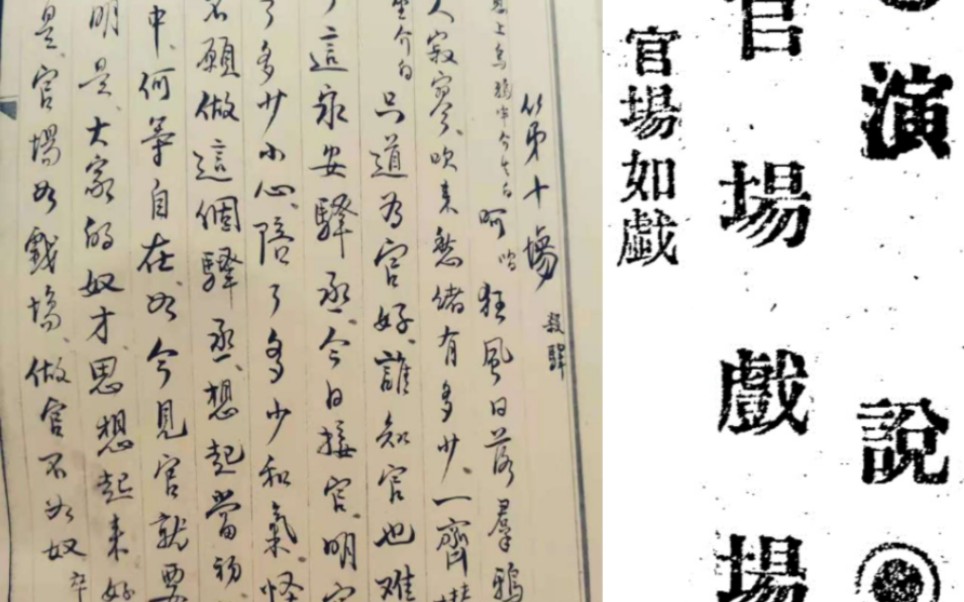 第十場 殺驛
上烏鴉叫介 呵哈 狂風日落羣鴉
人寂寥、吹來愁緒有多少、一齊
坐介白 只道為官好、誰知官也难
這永安驛丞、今日接官、明
了多少小心、陪了多少和氣、怪
不願做這個驛丞、想起當初
中、何等自在、如今見官就要
明是、大家的奴才思想起來好
是、官場如戲場、做官不如奴
演說
官場戲場
官場如戲